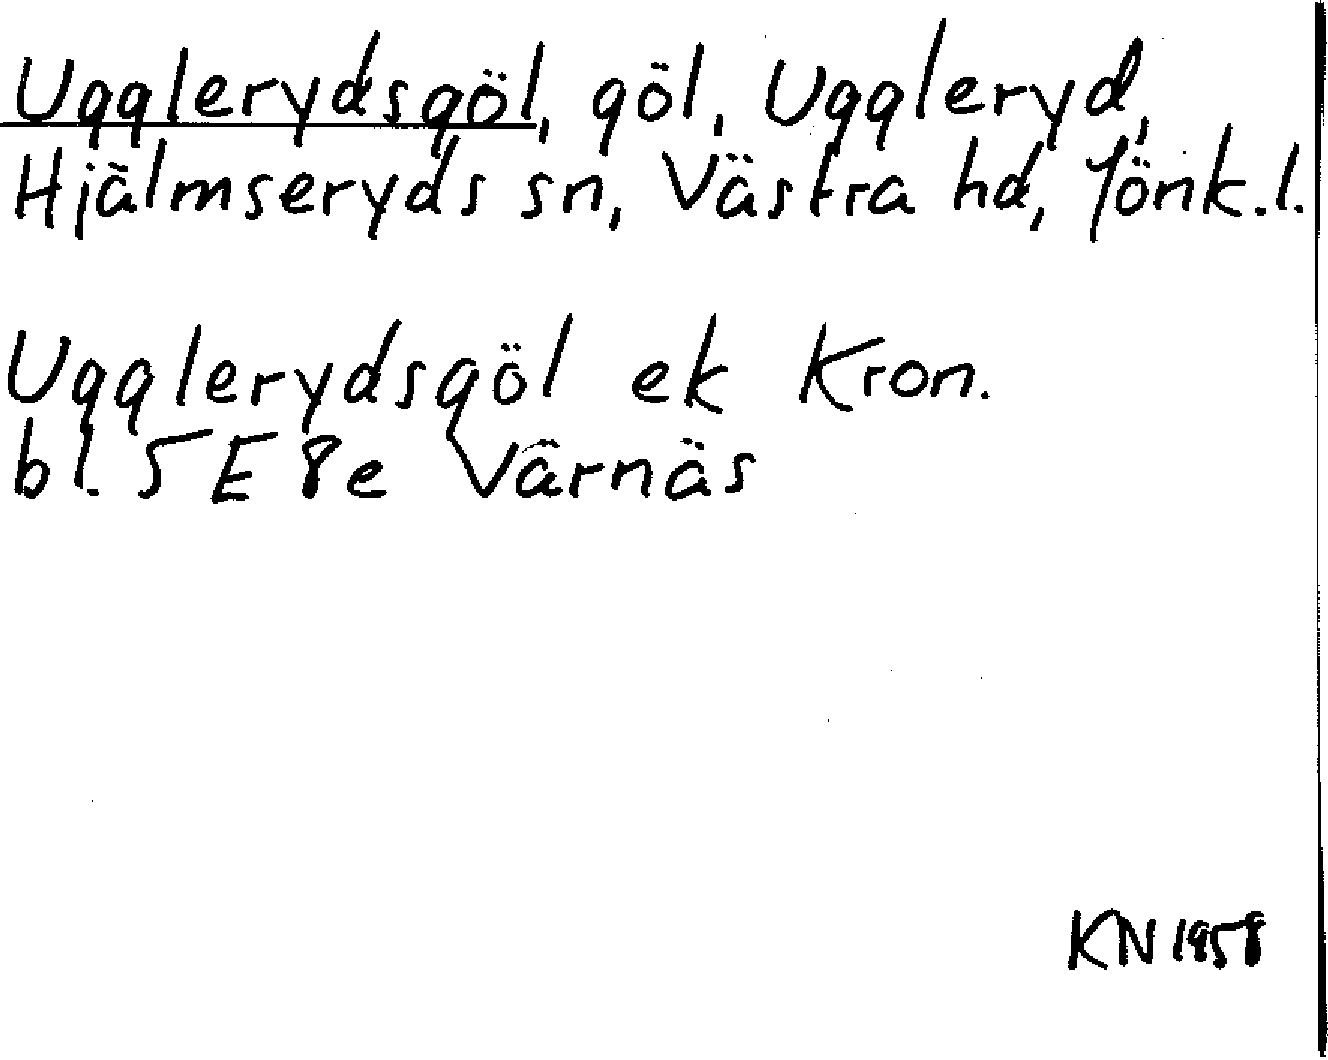 Ugglerydsgöl, göl, Uggleryd,
Hjälmseryds sn, Västra hd, Jönk.l.
Ugglerydsgöl ek Kron.
bl. 5 E 8e Värnäs
KN 1958